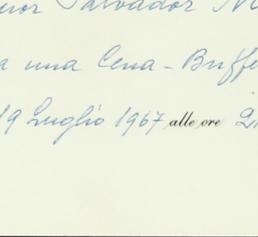 Salvador
una Cena-Buffe
19 Luglio 1967 alle ore 2